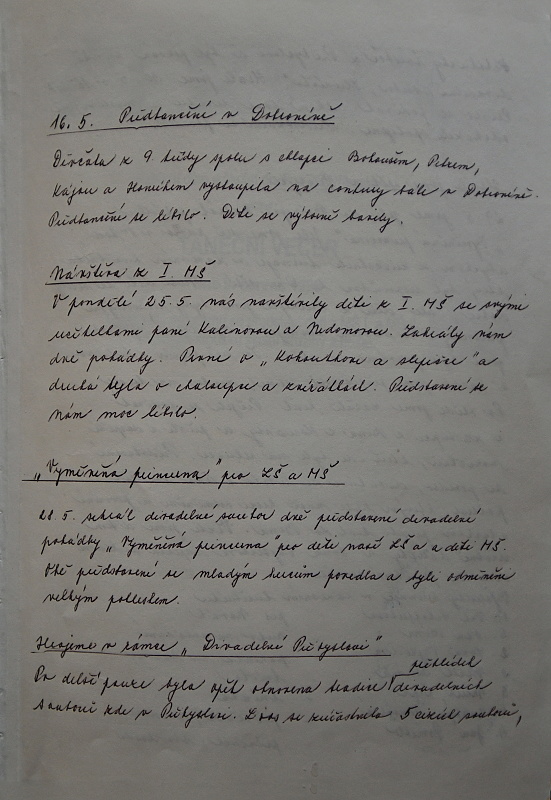 16. 5. Předtančení v Dobroníně
Děvčata z 9. třídy spolu s chlapci Bohoušem, Petrem,
Kájou a Honzíkem vystoupila na country bále v Dobroníně.
Předtančení se líbilo. Děti se výborně bavily.
Návštěva z I. MŠ
V pondělí 25. 5. nás navštívily děti z I. MŠ se svými
učitelkami paní Kalinovou a Nedomovou. Zahrály nám
dvě pohádky. První o „Kohoutkovi a slepičce" a
druhá byla o chaloupce a zvířátkách. Představení se
nám moc líbilo.
„Vyměněná princezna" pro ZŠ a MŠ
28. 5. sehrál divadelní soubor dvě představení divadelní
pohádky „Vyměněná princezna" pro děti naší ZŠ a a děti MŠ.
Obě představení se mladým hercům povedla a byli odměněni
velkým potleskem.
Hrajeme v rámci „Divadelní Přibyslavi"
přehlídek
Po delší pauze byla opět obnovena tradice divadelních
souborů zde v Přibyslavi. Letos se zúčastnilo 5 cizích souborů,